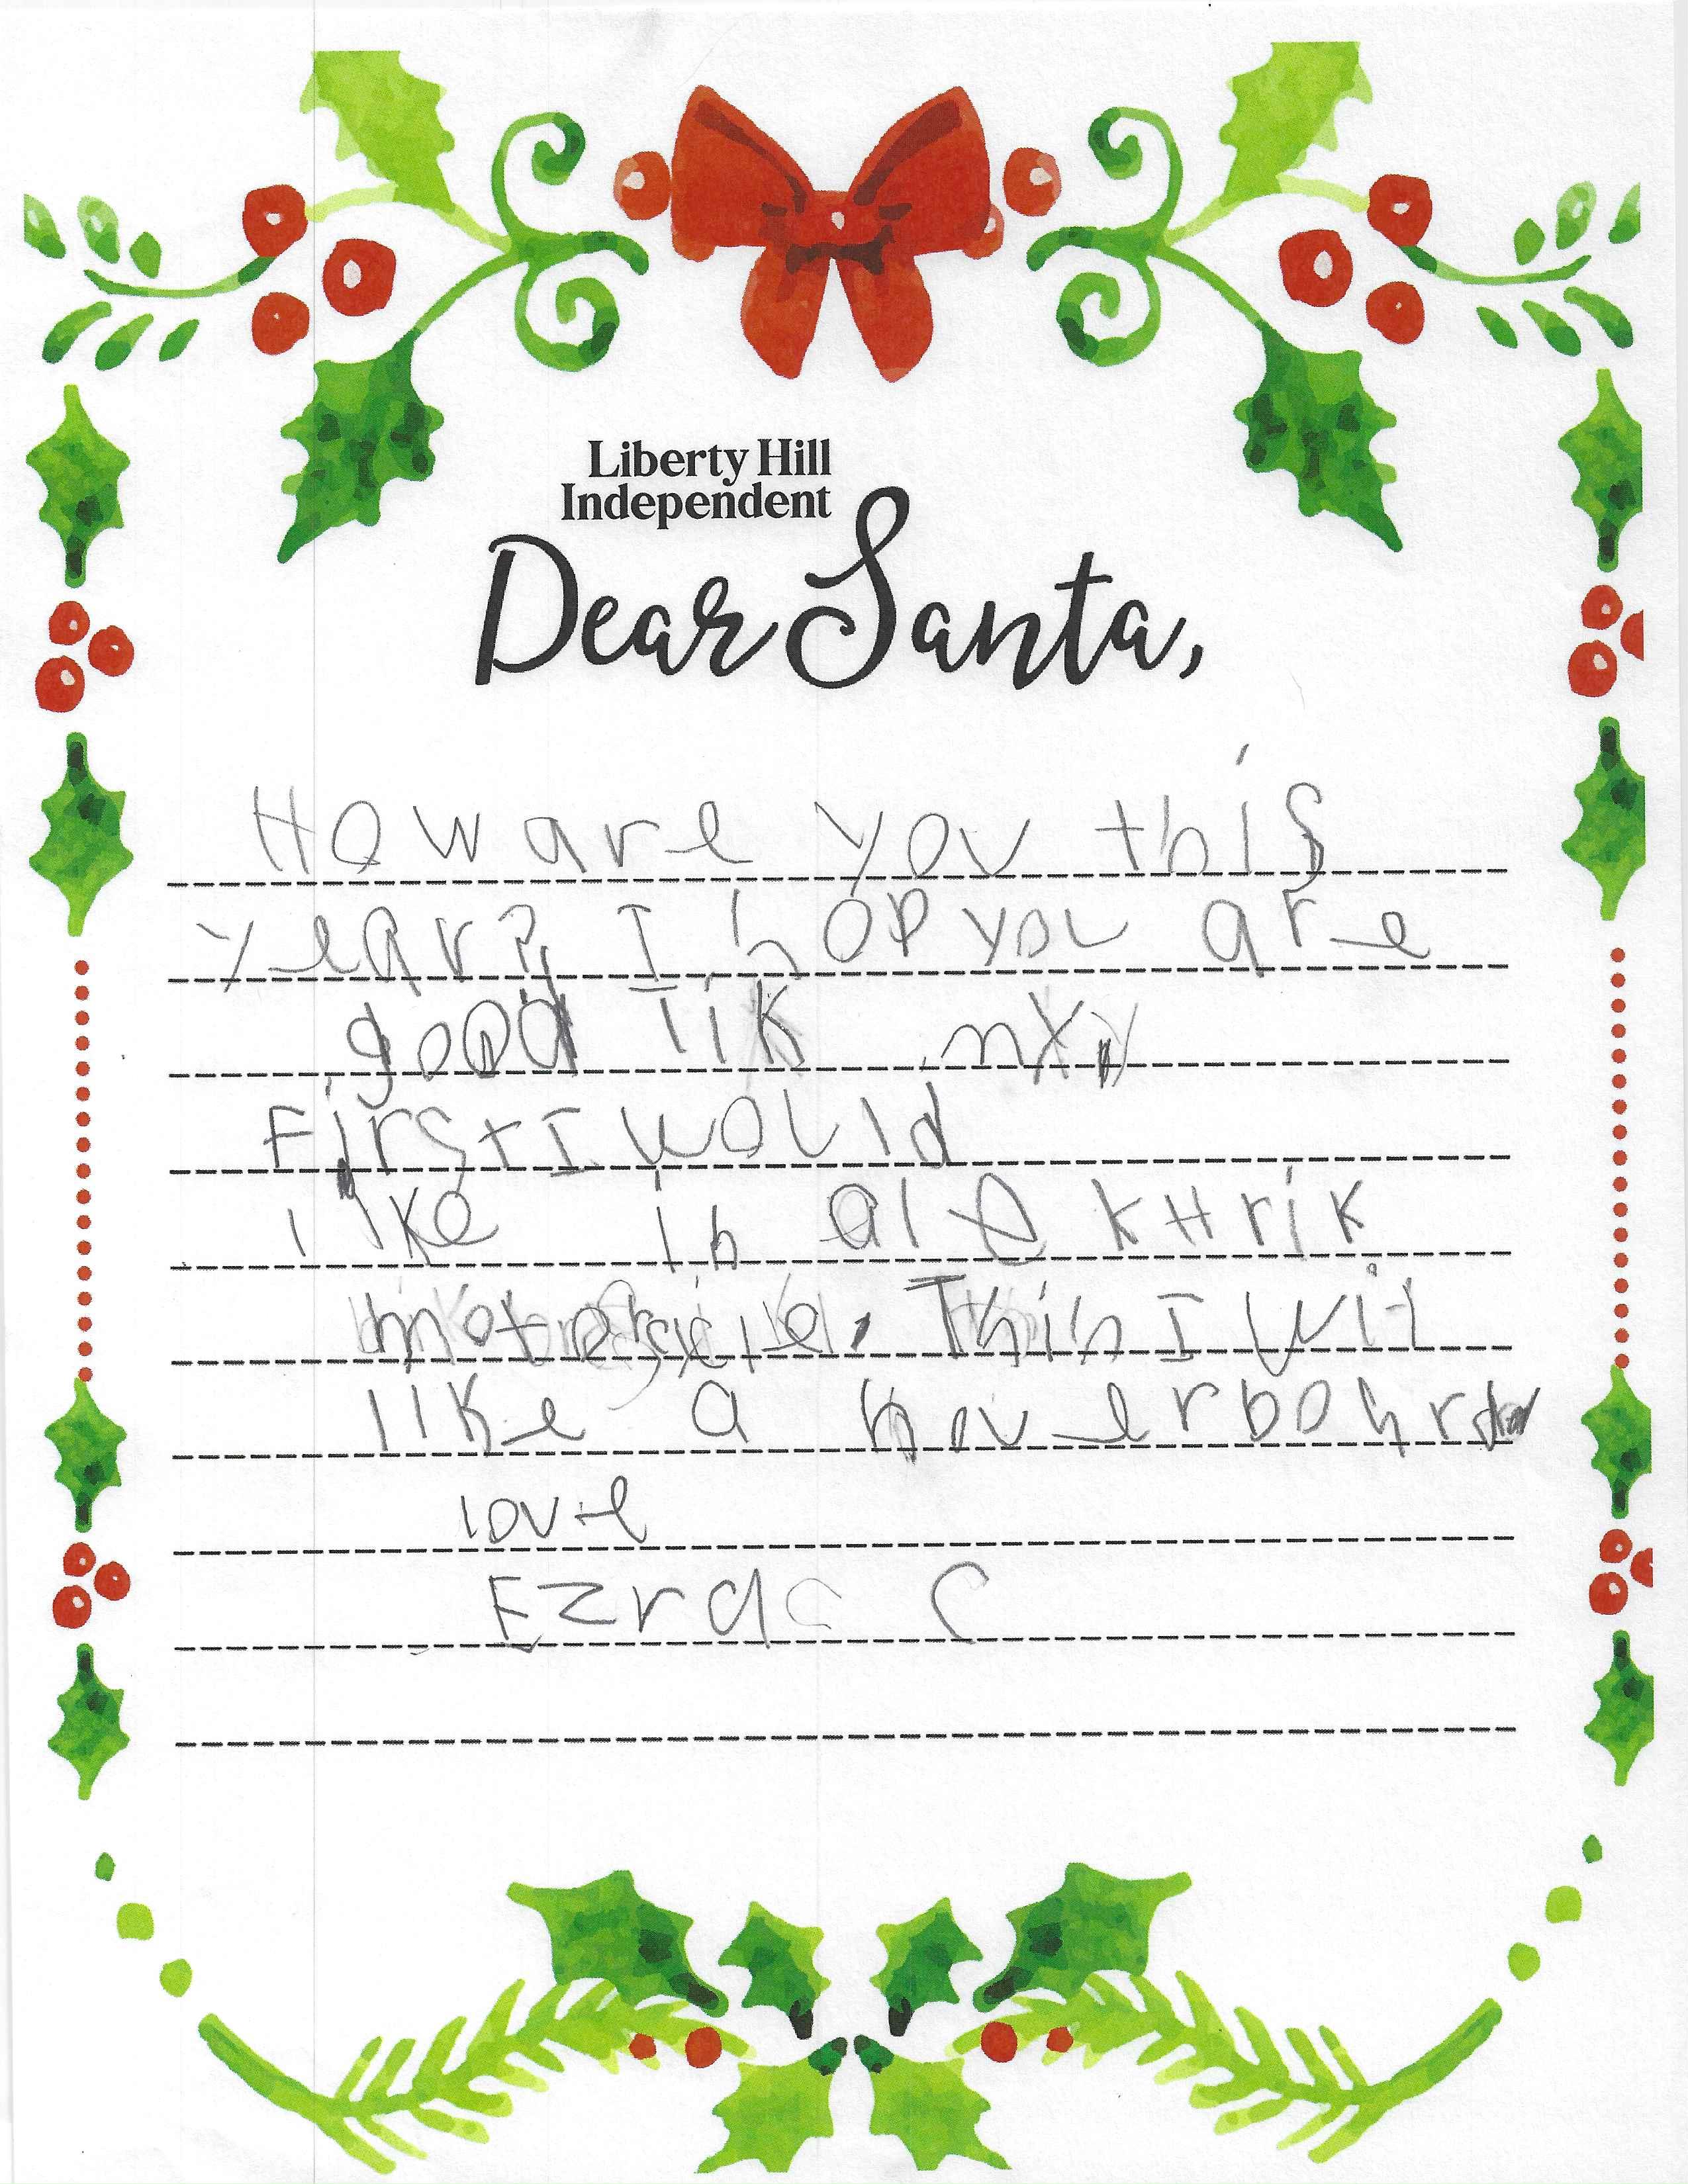 Liberty Hill
Independent
Dear Santa,
How are you this
year? I hop you are
good lik
First I would
like in alekHrik
motersicle. Thin I wil
like a hoverbohrd
love
Ezra C